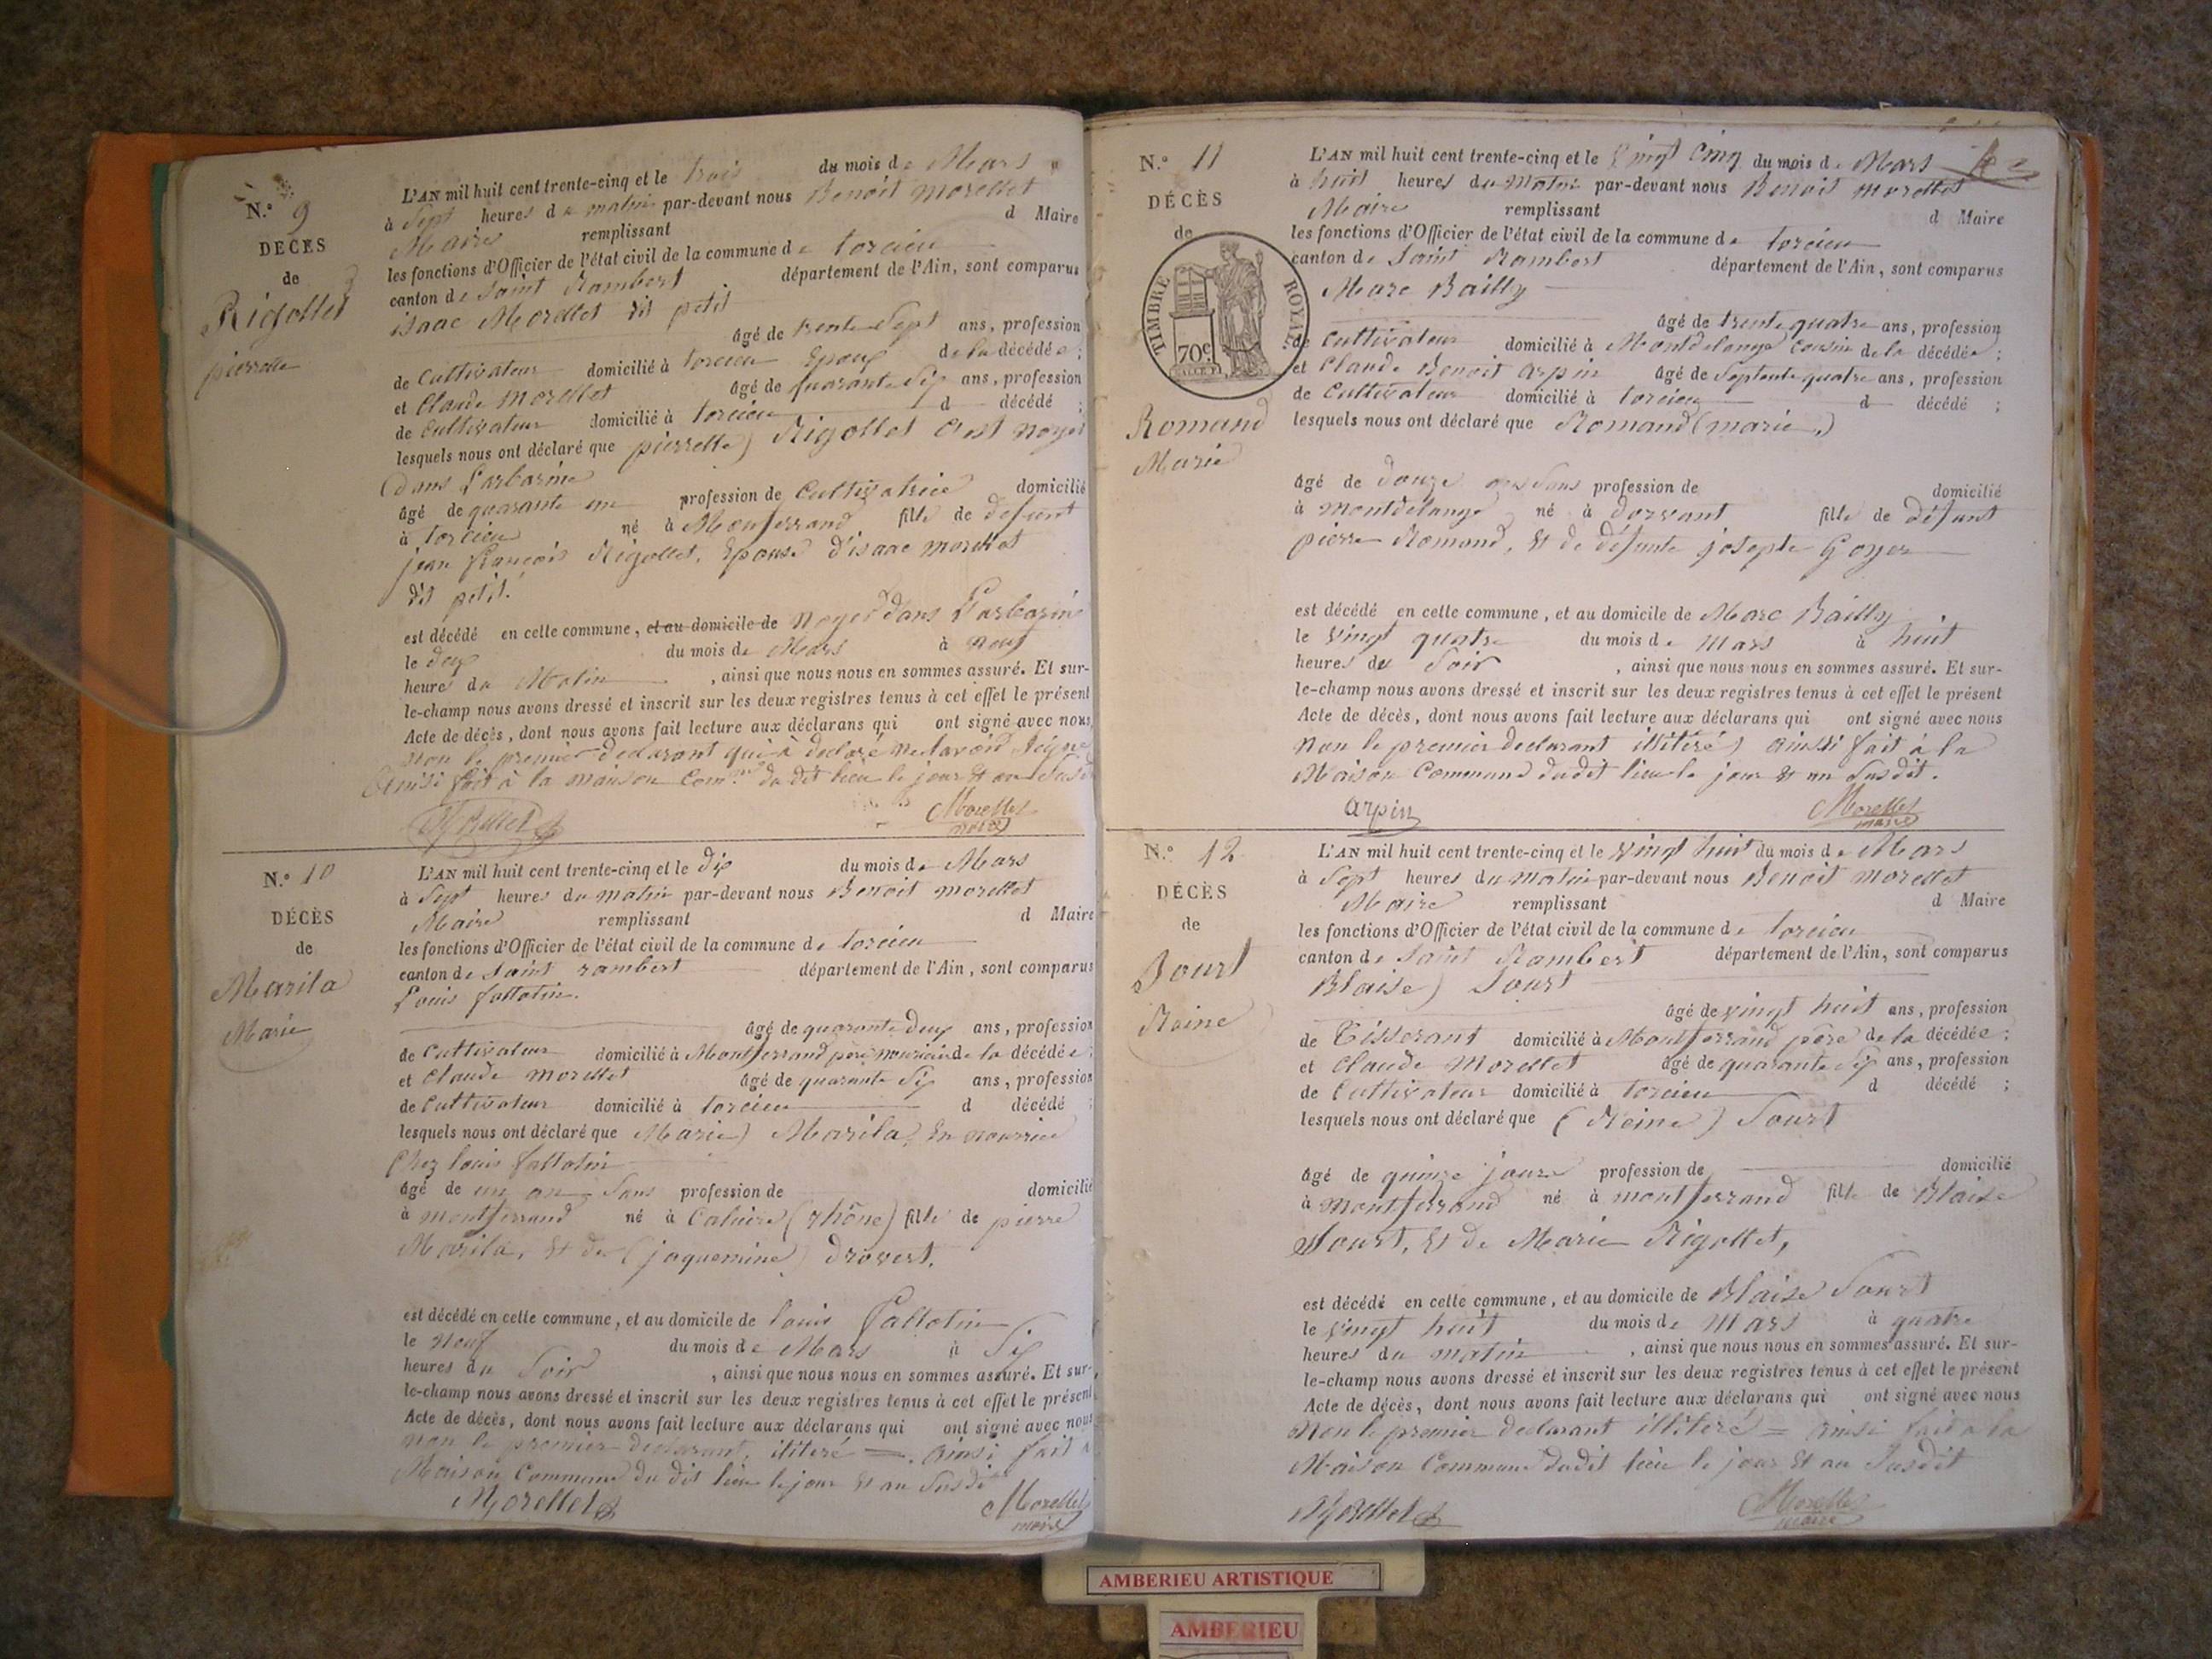 N.º 9
DÉCÈS
de
Rigollet
pierrette
L'AN mil huit cent trente-cinq et le trois du mois de Mars
à Sept heures du matin par-devant nous Benoit morellet
Maire remplissant d Maire
les fonctions d'Officier de l'état civil de la commune de torcieu
canton de Saint Rambert département de l'Ain, sont comparus
isaac Morellet dit petit
âgé de trente Sept ans, profession
de Cultivateur domicilié à torcieu Epoux de la décédée ;
et Claude morellet âgé de quarante Six ans, profession
de Cultivateur domicilié à torcieu d décédé ;
lesquels nous ont déclaré que pierrette) Rigollet
dans L'arbarine
âgé de quarante un profession de Cultivatrice domicilié
à torcieu né à Montferrand fille de defunt
jean françois Rigollet, Epouse d'isaac morellet
dit petit.
est décédé en cette commune, et au domicile de noyé dans L'arbarine
le deux du mois de Mars à neuf
heures du Matin , ainsi que nous nous en sommes assuré. Et sur-
le-champ nous avons dressé et inscrit sur les deux registres tenus à cet effet le présent
Acte de décès, dont nous avons fait lecture aux déclarans qui ont signé avec nous
non le premier declarant qui à declaré ne savoir signer
Ainsi fait à la maison Com.ne du dit lieu le jour et an Susdit
Morellet Morellet
maire
N.º 10
DÉCÈS
de
Marila
Marie
L'AN mil huit cent trente-cinq et le dix du mois de Mars
à Sept heures du matin par-devant nous Benoit morellet
Maire remplissant d Maire
les fonctions d'Officier de l'état civil de la commune de torcieu
canton de Saint rambert département de l'Ain, sont comparus
Louis fallatin.
âgé de quarante deux ans, profession
de Cultivateur domicilié à Montferrand père nourricier de la décédée ;
et Claude morellet âgé de quarante Six ans, profession
de Cultivateur domicilié à torcieu d décédé ;
lesquels nous ont déclaré que Marie) Marila, En nourrice
Chez louis fallatin
âgé de un an Sans profession de domicilié
à montferrand né à Caluire (rhône) fille de pierre
Marila, et de (jaquemine) drovert.
est décédé en cette commune, et au domicile de louis fallatin
le neuf du mois de Mars à Six
heures du Soir , ainsi que nous nous en sommes assuré. Et sur-
le-champ nous avons dressé et inscrit sur les deux registres tenus à cet effet le présent
Acte de décès, dont nous avons fait lecture aux déclarans qui ont signé avec nous
non le premier declarant, ilitéré = ainsi fait à
Maison Commune du dit lieu le jour et an Susdit
Morellet Morellet
maire
N.º 11
DÉCÈS
de
TIMBRE ROYAL
70c
Romand
Marie
L'AN mil huit cent trente-cinq et le vingt Cinq du mois de Mars
à huit heures du Matin par-devant nous Benoit morellet
Maire remplissant d Maire
les fonctions d'Officier de l'état civil de la commune de torcieu
canton de Saint Rambert département de l'Ain, sont comparus
Marc Bailly
âgé de trente quatre ans, profession
de Cultivateur domicilié à Montdelange cousin de la décédée ;
et Claude Benoit arpin âgé de Septente quatre ans, profession
de Cultivateur domicilié à torcieu d décédé ;
lesquels nous ont déclaré que Romand (marie)
âgé de douze ans Sans profession de domicilié
à montdelange né à dorvant fille de défunt
pierre Romand, et de défunte josepte Goyer
est décédé en cette commune, et au domicile de Marc Bailly
le vingt quatre du mois de mars à huit
heures du Soir , ainsi que nous nous en sommes assuré. Et sur-
le-champ nous avons dressé et inscrit sur les deux registres tenus à cet effet le présent
Acte de décès, dont nous avons fait lecture aux déclarans qui ont signé avec nous
non le premier declarant illitéré) ainsi fait à la
Maison Commune dudit lieu le jour et an Susdit.
arpin Morellet
maire
N.º 12
DÉCÈS
de
Sourt
Reine
L'AN mil huit cent trente-cinq et le vingt huit du mois de Mars
à Sept heures du matin par-devant nous Benoit morellet
Maire remplissant d Maire
les fonctions d'Officier de l'état civil de la commune de torcieu
canton de Saint Rambert département de l'Ain, sont comparus
Blaise) Sourt
âgé de vingt huit ans, profession
de Tisserant domicilié à Montferrand père de la décédée ;
et Claude Morellet âgé de quarante Six ans, profession
de Cultivateur domicilié à torcieu d décédé ;
lesquels nous ont déclaré que (Reine) Sourt
âgé de quinze jours profession de domicilié
à montferrand né à montferrand fille de Blaise
Sourt, et de Marie Rigollet,
est décédé en cette commune, et au domicile de Blaise Sourt
le vingt huit du mois de mars à quatre
heures du matin , ainsi que nous nous en sommes assuré. Et sur-
le-champ nous avons dressé et inscrit sur les deux registres tenus à cet effet le présent
Acte de décès, dont nous avons fait lecture aux déclarans qui ont signé avec nous
non le premier declarant illiteré = ainsi fait a la
Maison Commune dudit lieu le jour et an Susdit
Morellet Morellet
maire
AMBERIEU ARTISTIQUE
AMBERIEU